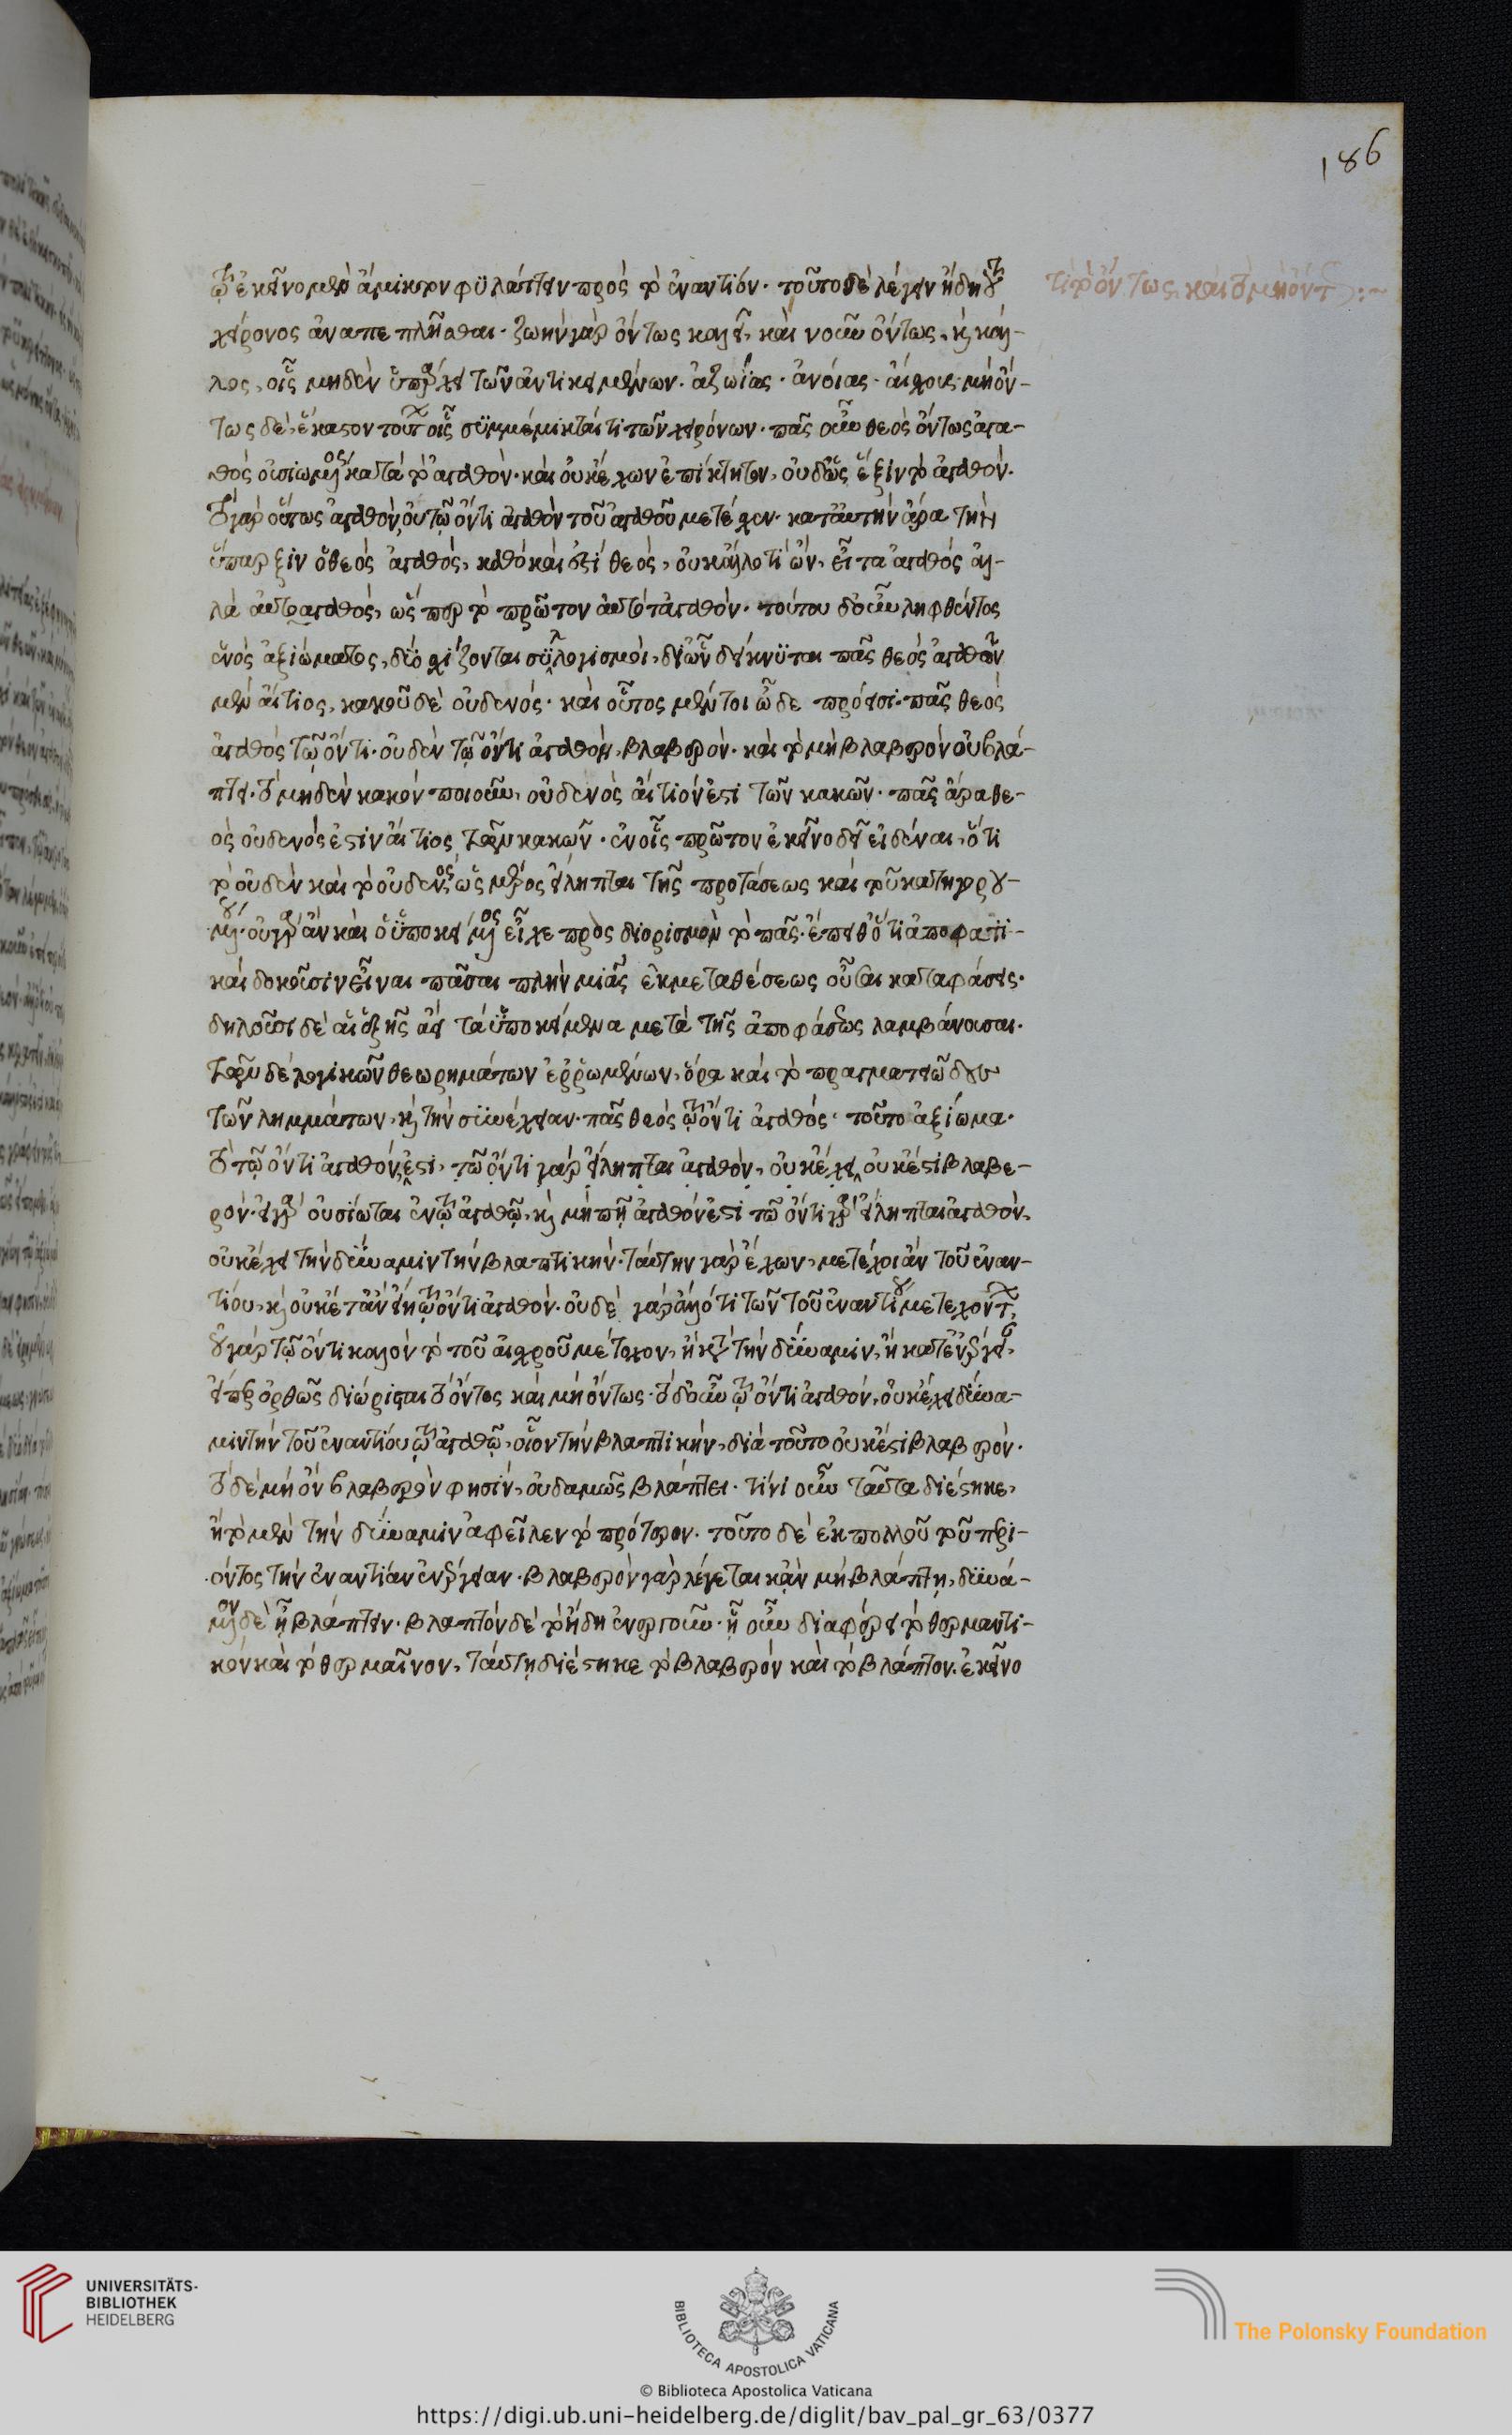 186
τῷ ἐκεῖνο μὲν ἄμικτον φυλάττειν πρὸς τὸ ἐναντίον. τοῦτο δὲ λέγειν ἤδη τοῦ
χείρονος ἀναπεπλῆσθαι. ζωὴν γὰρ ὄντως καλεῖ, καὶ νοῦν ὄντως, καὶ κάλ-
λος, οἷς μηδὲν ὑπάρχει τῶν ἀντικειμένων. ἀζωίας. ἀνοίας. αἴσχους. μὴ ὄν-
τως δὲ, ἕκαστον τούτων οἷς συμμέμικταί τι τῶν χειρόνων. πᾶς οὖν θεὸς ὄντως ἀγα-
θὸς οὐσιωμένος κατὰ τὸ ἀγαθὸν. καὶ οὐκ ἔχων ἐπίκτητον, οὐδ' ὡς ἕξιν τὸ ἀγαθὸν.
τὸ γὰρ οὕτως ἀγαθὸν, οὐ τῷ ὄντι ἀγαθὸν τοῦ ἀγαθοῦ μετέσχεν. κατ' αὐτὴν ἄρα τὴν
ὕπαρξιν ὁ θεὸς ἀγαθός, καθὸ καὶ ἐστὶ θεός, οὐκ ἄλλο τι ὤν, εἶτα ἀγαθὸς ἀλ-
λὰ αὐτοαγαθὸς, ὥσπερ τὸ πρῶτον αὐτοτἀγαθὸν. τούτου δ' οὖν ληφθέντος
ἑνὸς ἀξιώματος, δύο σχίζονται συλλογισμοὶ, δι' ὧν δείκνυται πᾶς θεὸς ἀγαθῶν
μὲν αἴτιος, κακοῦ δὲ οὐδενός. καὶ οὗτος μέντοι ὧδε πρόεισι. πᾶς θεὸς
ἀγαθὸς τῷ ὄντι. οὐδὲν τῷ ὄντι ἀγαθὸν, βλαβερόν. καὶ τὸ μὴ βλαβερὸν οὐ βλά-
πτει. τὸ μηδὲν κακὸν ποιοῦν, οὐδενὸς αἴτιόν ἐστι τῶν κακῶν. πᾶς ἄρα θε-
ὸς οὐδενός ἐστιν αἴτιος τῶν κακῶν. ἐν οἷς πρῶτον ἐκεῖνο δεῖ εἰδέναι, ὅτι
τὸ οὐδὲν καὶ τὸ οὐδενὸς, ὡς μέρος εἴληπται τῆς προτάσεως καὶ τοῦ κατηγορου-
μένου. οὐ γὰρ ἂν καὶ ὁ ὑποκείμενος εἶχε προσδιορισμὸν τὸ πᾶς. ἔπειθ' ὅτι ἀποφατι-
καὶ δοκοῦσιν εἶναι πᾶσαι πλὴν μιᾶς ἐκ μεταθέσεως οὖσαι καταφάσεις.
δηλοῦσι δὲ αἱ ἑξῆς ἀεὶ τὰ ὑποκείμενα μετὰ τῆς ἀποφάσεως λαμβάνουσαι.
τῶν δὲ λογικῶν θεωρημάτων ἐρρωμένων, ὅρα καὶ τὸ πραγματειῶδες
τῶν λημμάτων, καὶ τὴν συνέχειαν. πᾶς θεὸς τῷ ὄντι ἀγαθός. τοῦτο ἀξίωμα.
τὸ τῷ ὄντι ἀγαθόν, ἐστι, τῷ ὄντι γὰρ εἴληπται ἀγαθὸν, οὐκ ἔχει οὐκ ἔστι βλαβε-
ρόν. εἰ γὰρ οὐσίωται ἐν τῷ ἀγαθῷ, καὶ μὴ πῇ ἀγαθόν ἐστι τῷ ὄντι γὰρ εἴληπται ἀγαθὸν,
οὐκ ἔχει τὴν δύναμιν τὴν βλαπτικήν. ταύτην γὰρ ἔχων, μετέχοι ἂν τοῦ ἐναν-
τίου, καὶ οὐκέτ' ἂν εἴη τῷ ὄντι ἀγαθὸν. οὐδὲ γὰρ ἄλλό τι τῶν τοῦ ἐναντίου μετεχόντων,
οὐ γὰρ τῷ ὄντι καλὸν τὸ τοῦ αἰσχροῦ μέτοχον, ἢ κατὰ τὴν δύναμιν, ἢ κατ' ἐνέργειαν,
εἴπερ ὀρθῶς διώρισται τὸ ὄντως καὶ μὴ ὄντως. τὸ δ' οὖν τῷ ὄντι ἀγαθόν, οὐκ ἔχει δύνα-
μιν τὴν τοῦ ἐναντίου τῷ ἀγαθῷ, οἷον τὴν βλαπτικήν, διὰ τοῦτο οὐκ ἔστι βλαβερόν.
τὸ δὲ μὴ ὂν βλαβερὸν φησίν, οὐδαμῶς βλάπτει. τίνι οὖν ταῦτα διέστηκε,
ἢ τὸ μὲν τὴν δύναμιν ἀφεῖλεν τὸ πρότερον. τοῦτο δὲ ἐκ πολλοῦ τοῦ περι-
όντος τὴν ἐναντίαν ἐνέργειαν. βλαβερὸν γὰρ λέγεται κἂν μὴ βλάπτῃ, δυνά-
μενον δὲ ᾖ βλάπτειν. βλάπτον δὲ τὸ ἤδη ἐνεργοῦν. ᾗ οὖν διαφέρει τὸ θερμαντι-
κὸν καὶ τὸ θερμαῖνον, ταύτῃ διέστηκε τὸ βλαβερὸν καὶ τὸ βλάπτον. ἐκεῖνο
τί τὸ ὄντως καὶ τὸ μὴ ὄντως:~
UNIVERSITÄTS-
BIBLIOTHEK
HEIDELBERG
BIBLIOTECA APOSTOLICA VATICANA
© Biblioteca Apostolica Vaticana
The Polonsky Foundation
https://digi.ub.uni-heidelberg.de/diglit/bav_pal_gr_63/0377